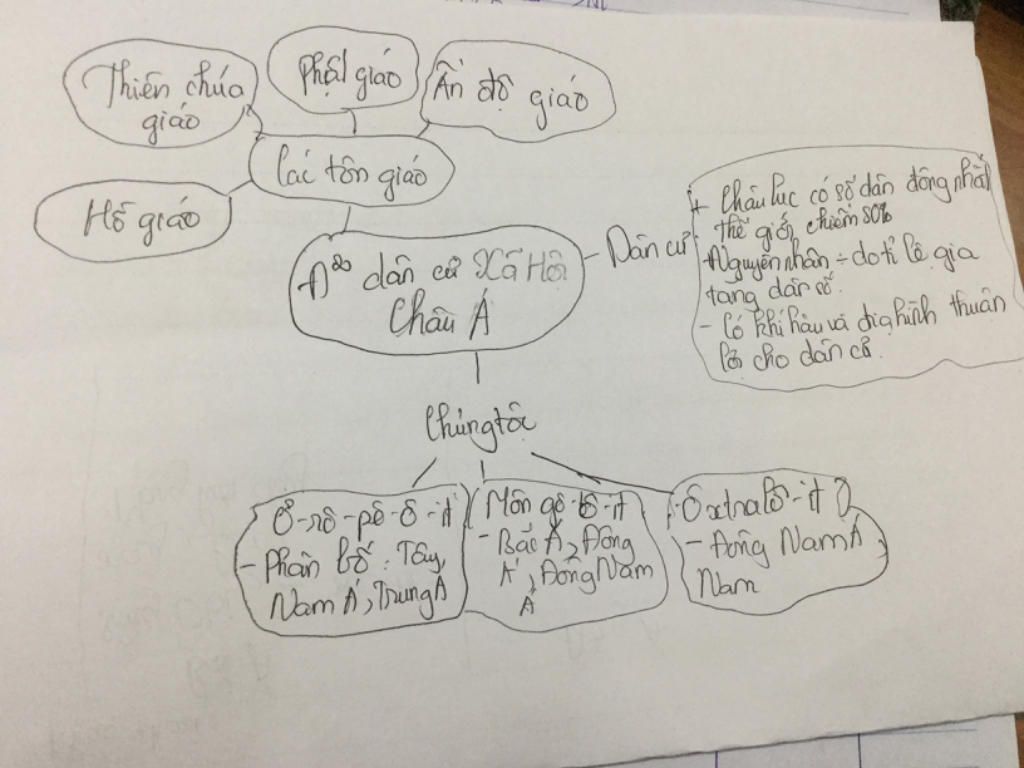 Thiên chúa
giáo
Phật giáo
Ấn độ giáo
Các tôn giáo
Hồ giáo
dân cư Xã Hội
Châu Á
Dân cư
+ Châu lục có số dân đông nhất
thế giới, chiếm
Nguyên nhân ÷ do tỉ lệ gia
tăng dân số.
- Có khí hậu và địa hình thuận
lợi cho dân cư.
Chủng tộc
Ơ-rô-pê-ô-it
- Phân bố: Tây,
Nam Á, Trung Á
Môn gô-lô-it
- Bắc Á, Đông
Á, Đông Nam
Á
Ôxtralô-it
- Đông Nam Á,
Nam